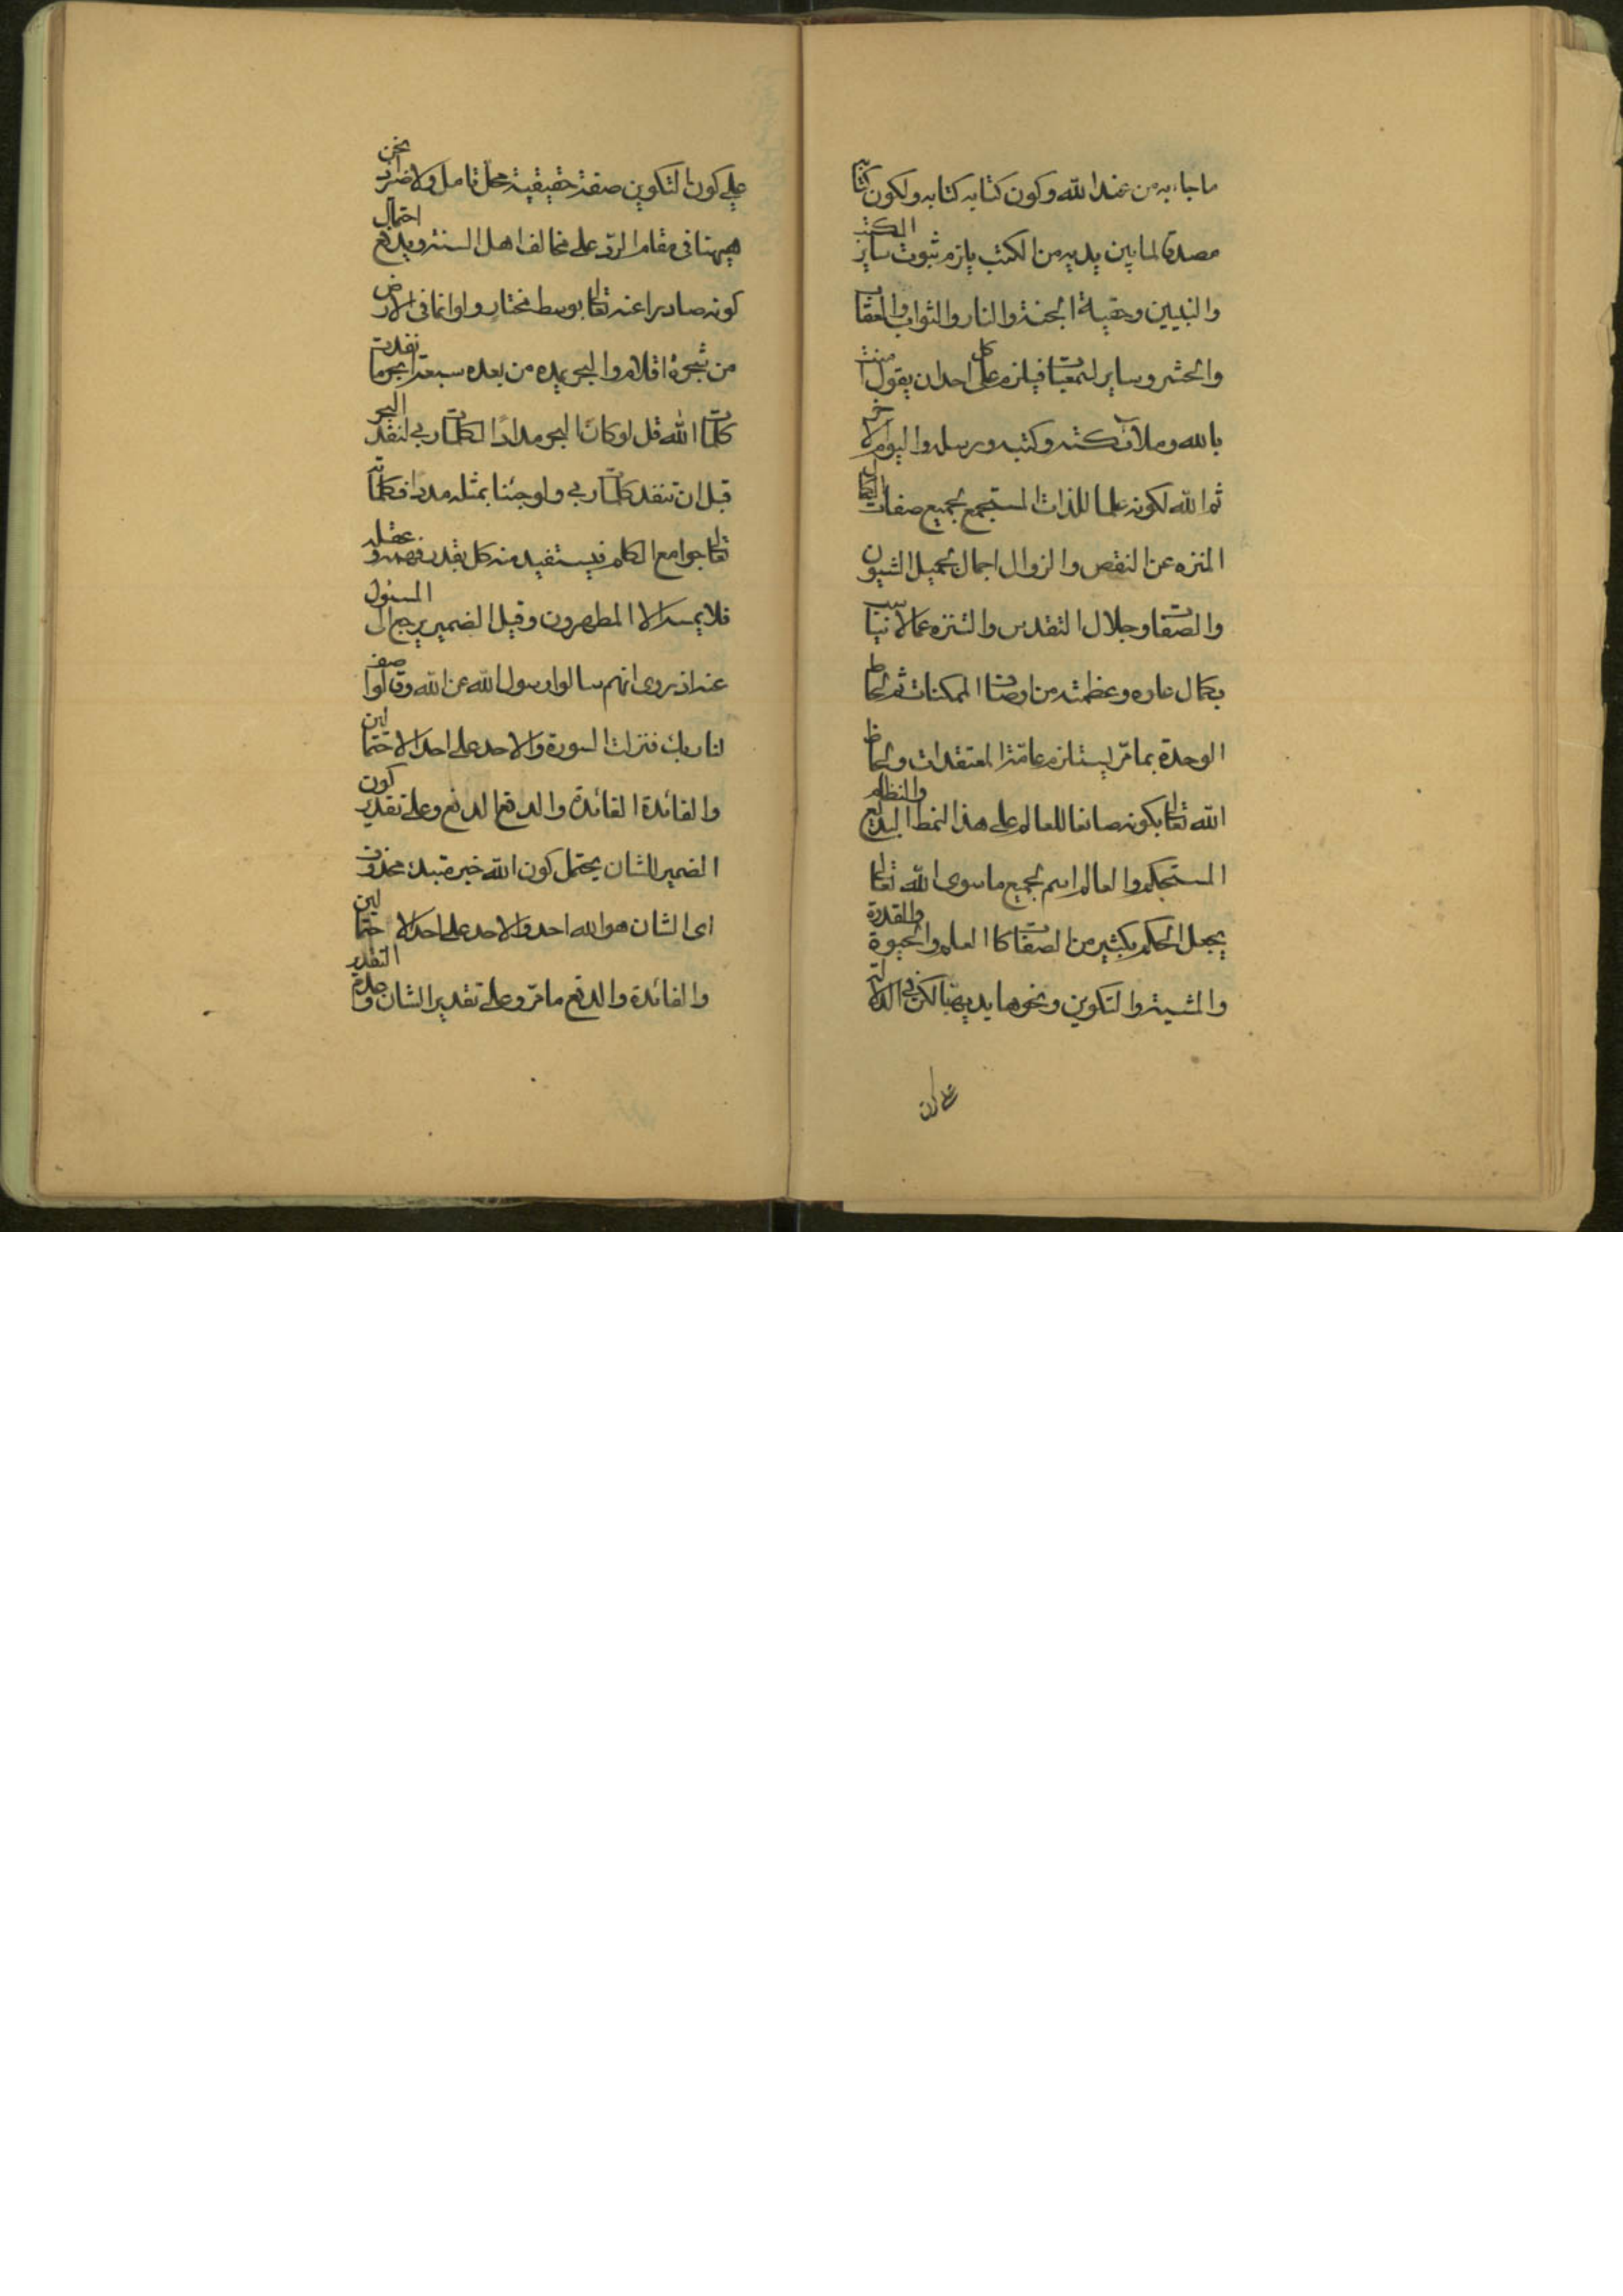 ما جاء به من عند الله وكون كتابه كتابه ولكون كتابه
مصدقا لما بين يديه من الكتب يلزم ثبوت ساير الكتب
والنبيين وحقية الجنة والنار والثواب والعقاب
والحشر وساير السمعيات فيلزم على كل احد ان يقول امنت
بالله وملائكته وكتبه ورسله واليوم الاخر
ثم الله لكونه علما للذات المستجمع لجميع صفات الكمال
المنزه عن النقص والزوال اجمال لجميل الشيون
والصفات وجلال التقدس والتنزه عما لا يناسب
بكمال علوه وعظمته من اوصاف الممكنات ثم لحاظ
الوحدة بما مرّ يستلزم عامّة المعتقدات ولحاظ
الله تعالى بكونه صانعا للعالم على هذا النمط البديع والنظام
المستحكم والعالم اسم لجميع ما سوى الله تعالى
يجعل الحكم بكثير من الصفات كا العلم والحيوة والقدرة
والمشية والتكوين ونحوها بديهيا لكن في الدلالة
على كون
على كون التكوين صفة حقيقية محل تامل ولا ضرر نحن
ههنا في مقام الردّ على مخالف اهل السنة ويدفع احتمال
كونه صادرا عنه تعالى بوسط مختار ولو انما في الارض
من شجرة اقلام والبحر يمده من بعده سبعة ابحر ما نفدت
كلمات الله قل لو كان البحر مدادًا لكلمات ربي لنفد البحر
قبل ان تنفد كلمات ربي ولو جئنا بمثله مددا فكلماته
تعالى جوامع الكلم فيستفيد منه كل بقدر فهمه و عقله
فلا يمسه الا المطهرون وقيل الضمير يرجع الى المسئول
عنه اذ روى انهم سالوا رسول الله عن الله وقالوا صف
لنا ربك فنزلت السورة والاحد على احد الاحتمالين
والفائدة الفائدة والدفع الدفع وعلى تقدير كون
الضمير للشان يحتمل كون الله خبر مبتدء محذوف
اى الشان هو الله احد والاحد على احد الاحتمالين
والفائدة والدفع ما مرّ وعلى تقدير الشان وحدة التقدير